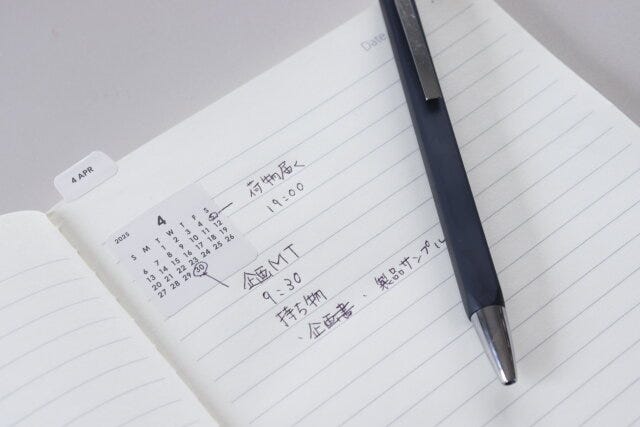 Date
4 APR
2025
4
S M T W T F S
1 2 3 4 5
6 7 8 9 10 11 12
13 14 15 16 17 18 19
20 21 22 23 24 25 26
27 28 29 30
荷物届く
19:00
企画MT
9:30
持ち物
・企画書、製品サンプル